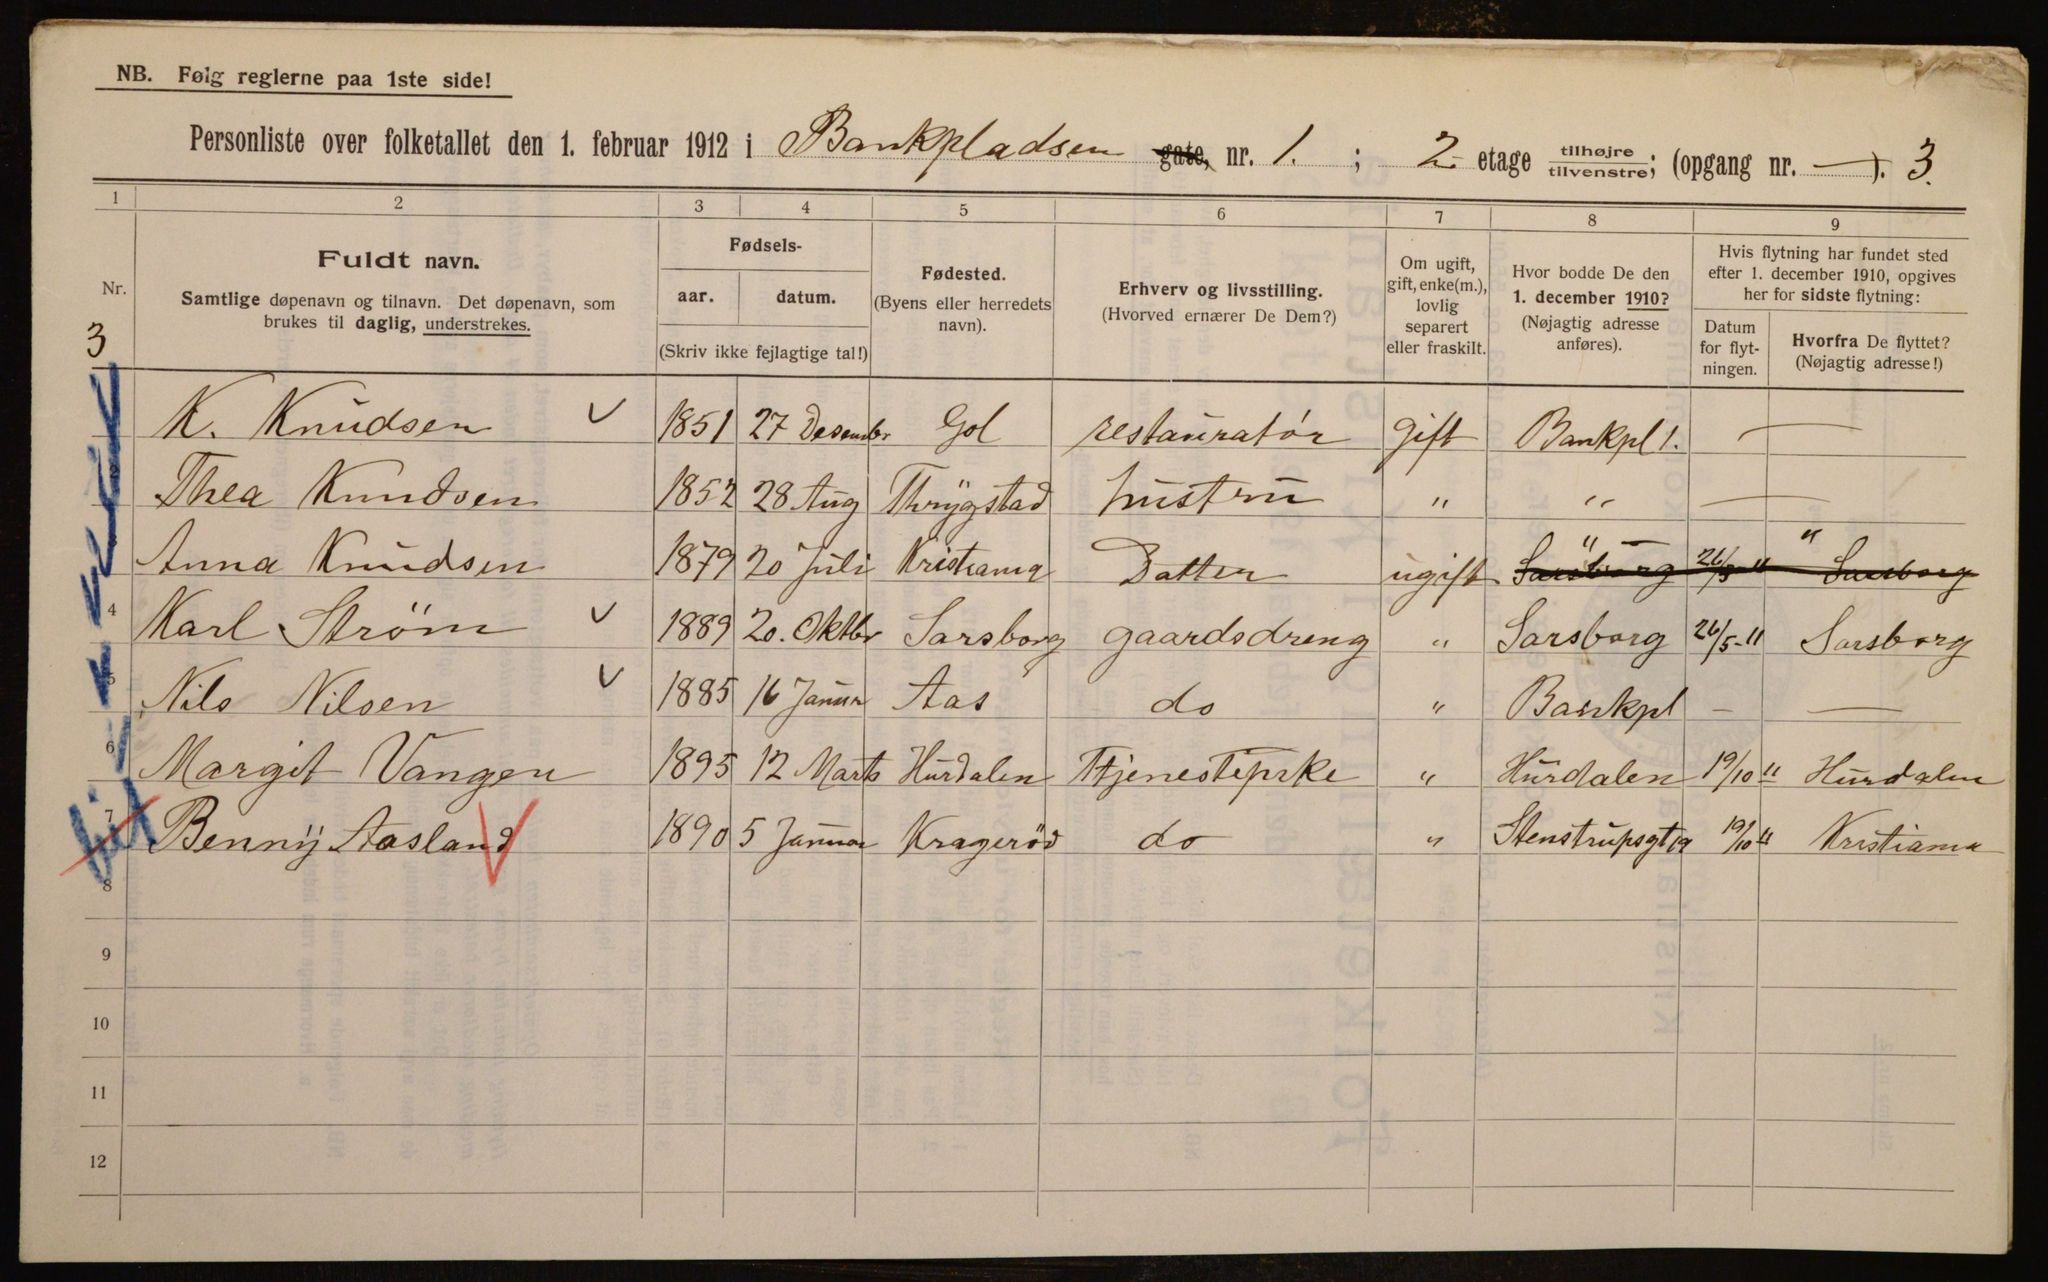 NB. Følg reglerne paa 1ste side!
Personliste over folketallet den 1. februar 1912 i Bankpladsen gate, nr. 1. ; 2 etage tilhøjre tilvenstre; (opgang nr. —). 3.
1 2 3 4 5 6 7 8 9
Nr.
3
Fuldt navn.
Samtlige døpenavn og tilnavn. Det døpenavn, som
brukes til daglig, understrekes.
Fødsels-
aar. datum.
(Skriv ikke fejlagtige tal!)
Fødested.
(Byens eller herredets
navn).
Erhverv og livsstilling.
(Hvorved ernærer De Dem?)
Om ugift,
gift, enke(m.),
lovlig
separert
eller fraskilt.
Hvor bodde De den
1. december 1910?
(Nøjagtig adresse
anføres).
Hvis flytning har fundet sted
efter 1. december 1910, opgives
her for sidste flytning:
Datum
for flyt-
ningen.
Hvorfra De flyttet?
(Nøjagtig adresse!)
K. Knudsen 1851 27 Desember Gol restauratør gift Bankpl 1. —
Thea Knudsen 1852 28 Aug Thrygstad hustru " " —
Anna Knudsen 1879 20 Juli Kristiania Datter ugift " Sarsborg 26/5-11 " Sarsborg
4 Karl Strøm 1889 20. Oktbr Sarsborg gaardsdreng " Sarsborg 26/5-11 Sarsborg
5 Nils Nilsen 1885 16 Januar Aas do " Bankpl — —
6 Margit Vangen 1895 12 Marts Hurdalen Tjenestepike " Hurdalen 19/10 11 Hurdalen
7 Benny Aasland 1890 5 Januar Kragerød do " Stenstrupsgt 19 19/10 11 Kristiania
8
9
10
11
12